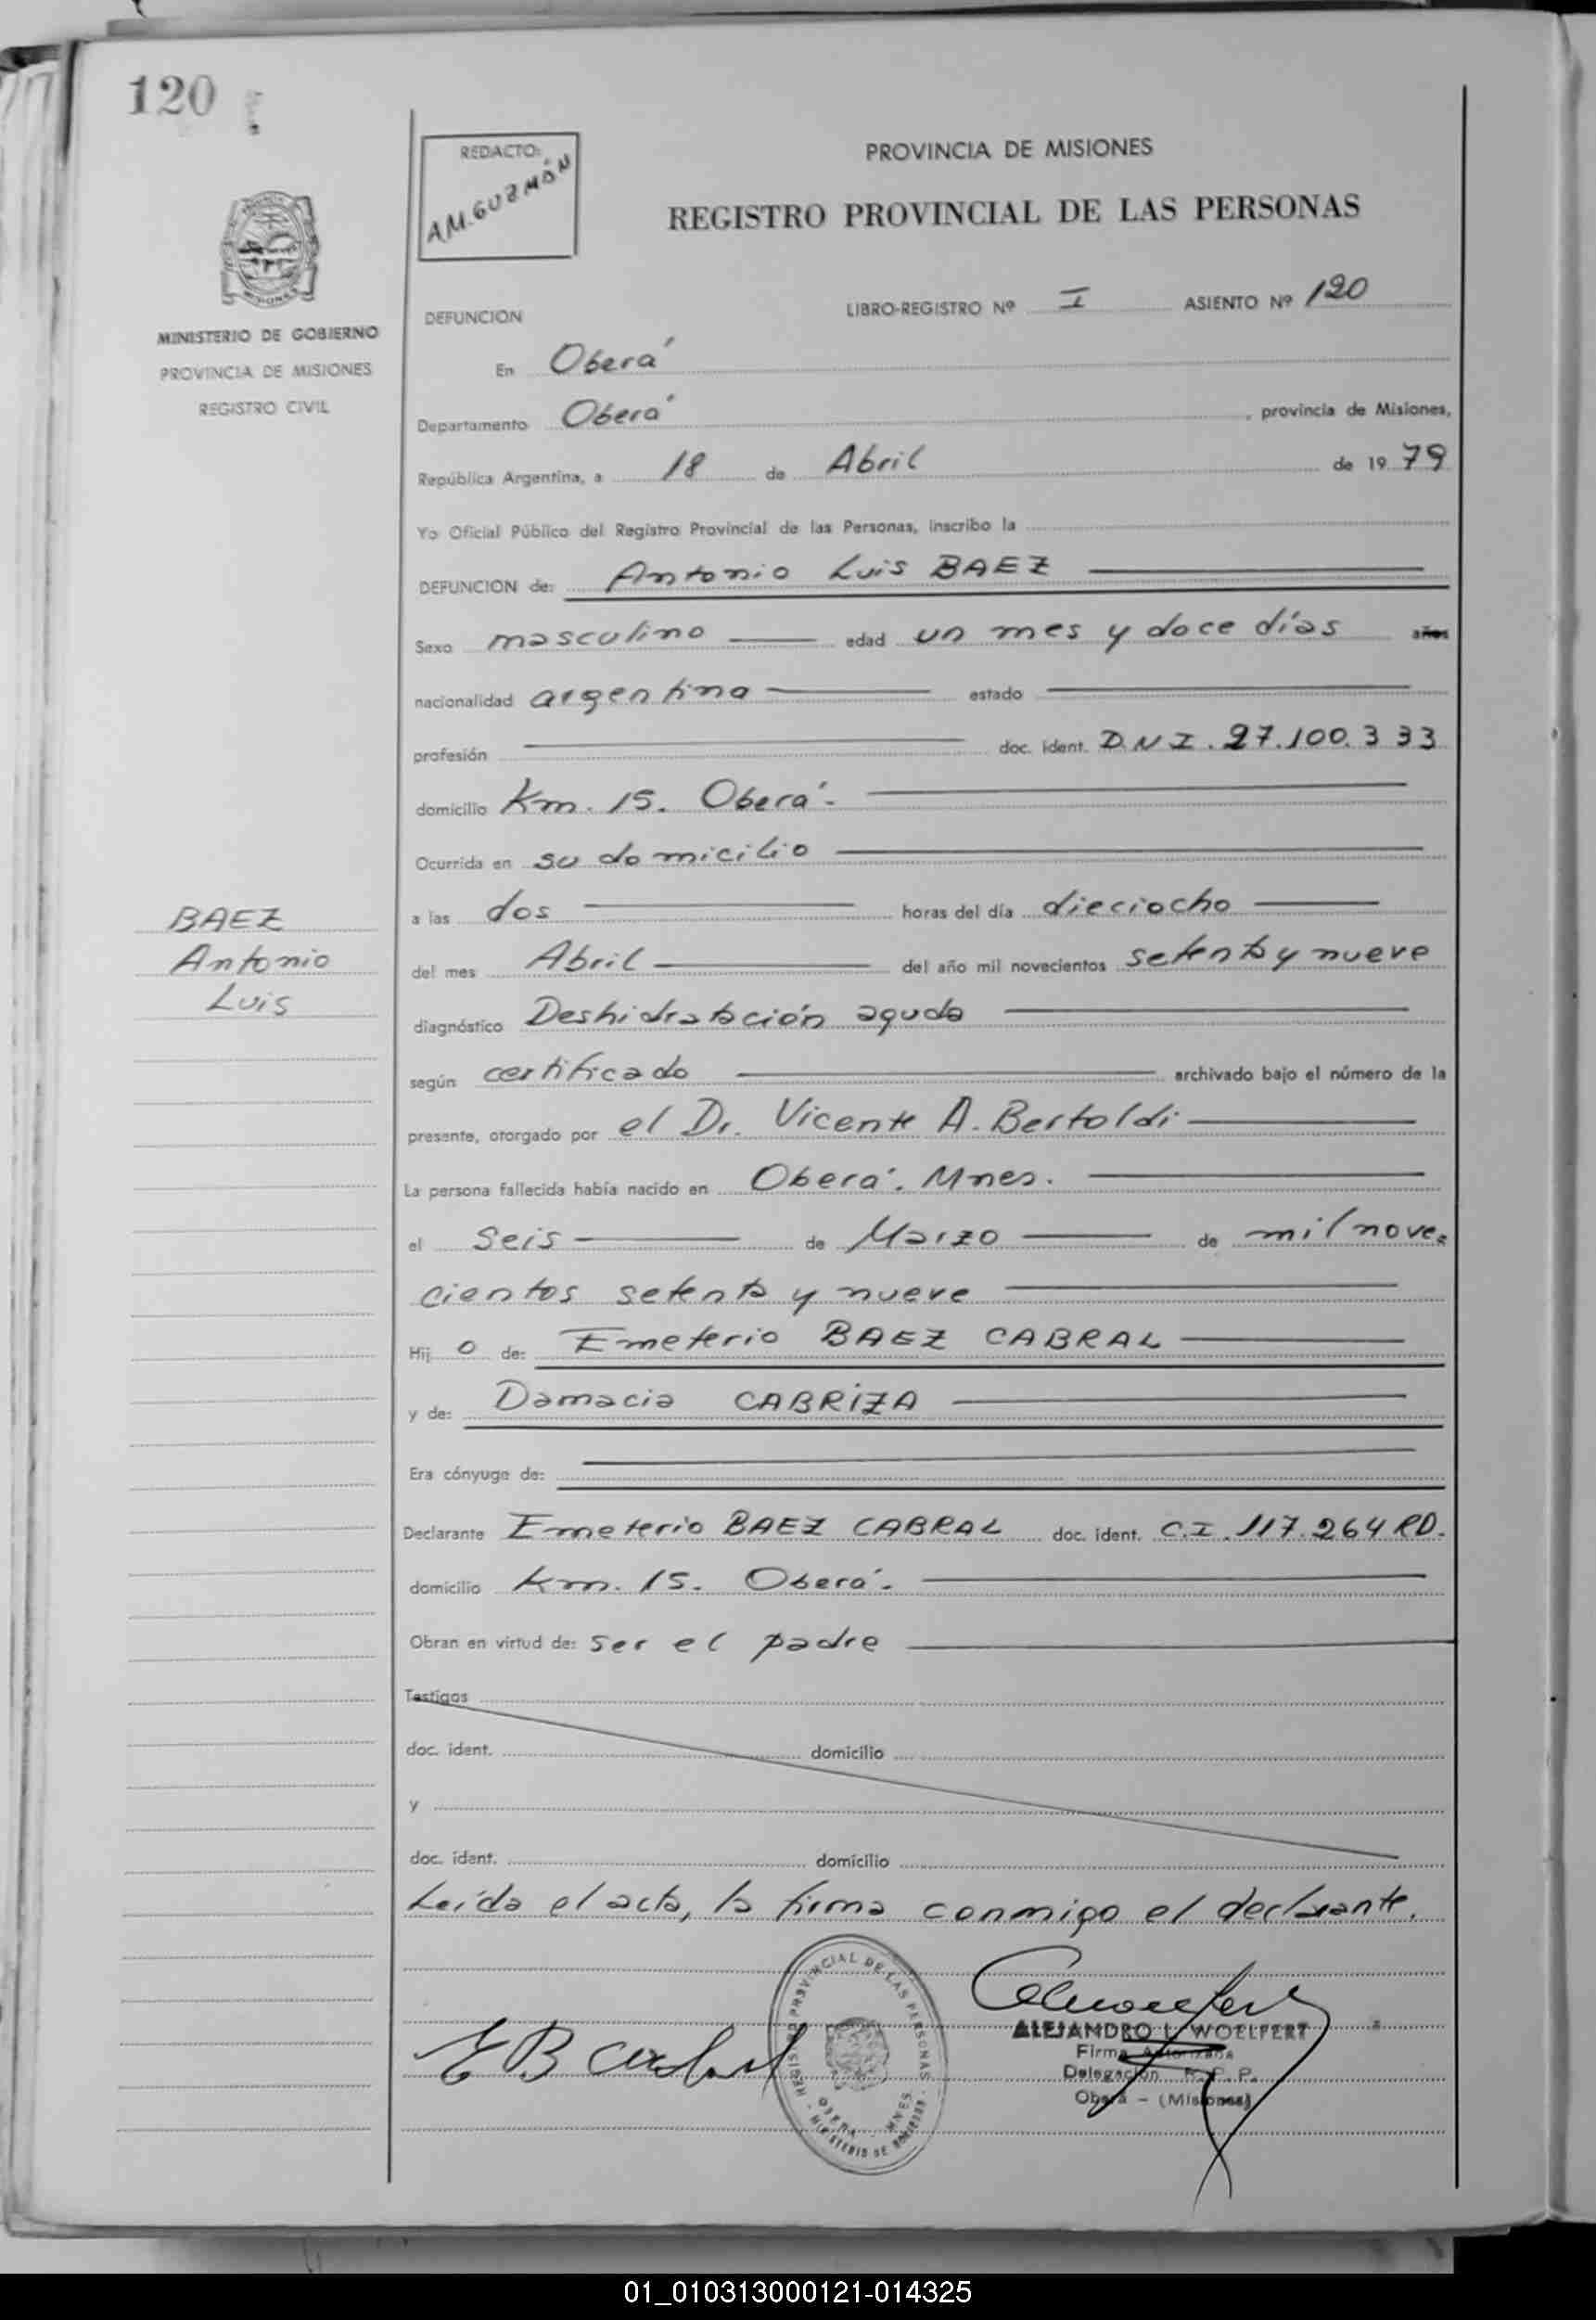 120
REDACTO:
A.M. GUZMÓN
PROVINCIA DE MISIONES
REGISTRO PROVINCIAL DE LAS PERSONAS
MISIONES
MINISTERIO DE GOBIERNO
PROVINCIA DE MISIONES
REGISTRO CIVIL
DEFUNCION
LIBRO-REGISTRO Nº I ASIENTO Nº 120
En Oberá
Departamento Oberá, provincia de Misiones,
República Argentina, a 18 de Abril de 19 79
Yo Oficial Público del Registro Provincial de las Personas, inscribo la
DEFUNCION de: Antonio Luis BAEZ
Sexo masculino edad un mes y doce días años
nacionalidad argentina estado
profesión doc. ident. D.N.I. 27.100.333
domicilio Km. 15. Oberá.
Ocurrida en su domicilio
a las dos horas del día dieciocho
del mes Abril del año mil novecientos setenta y nueve
diagnóstico Deshidratación aguda
según certificado archivado bajo el número de la
presente, otorgado por el Dr. Vicente A. Bertoldi
La persona fallecida había nacido en Oberá. Mnes.
el seis de Marzo de mil nove=
cientos setenta y nueve
Hij o de: Emeterio BAEZ CABRAL
y de: Damacia CABRIZA
Era cónyuge de:
Declarante Emeterio BAEZ CABRAL doc. ident. C.I. 117.264 RD.
domicilio Km. 15. Oberá.
Obran en virtud de: ser el padre
Testigos
doc. ident. domicilio
y
doc. ident. domicilio
Leída el acta, la firma conmigo el declarante.
BAEZ
Antonio
Luis
E B Cabral
REGISTRO PROVINCIAL DE LAS PERSONAS
OBERA - MNES
MINISTERIO DE GOBIERNO
ALEJANDRO L. WOELFERT
Firma Autorizada
Delegación R. P. P.
Oberá - (Misiones)
01_010313000121-014325